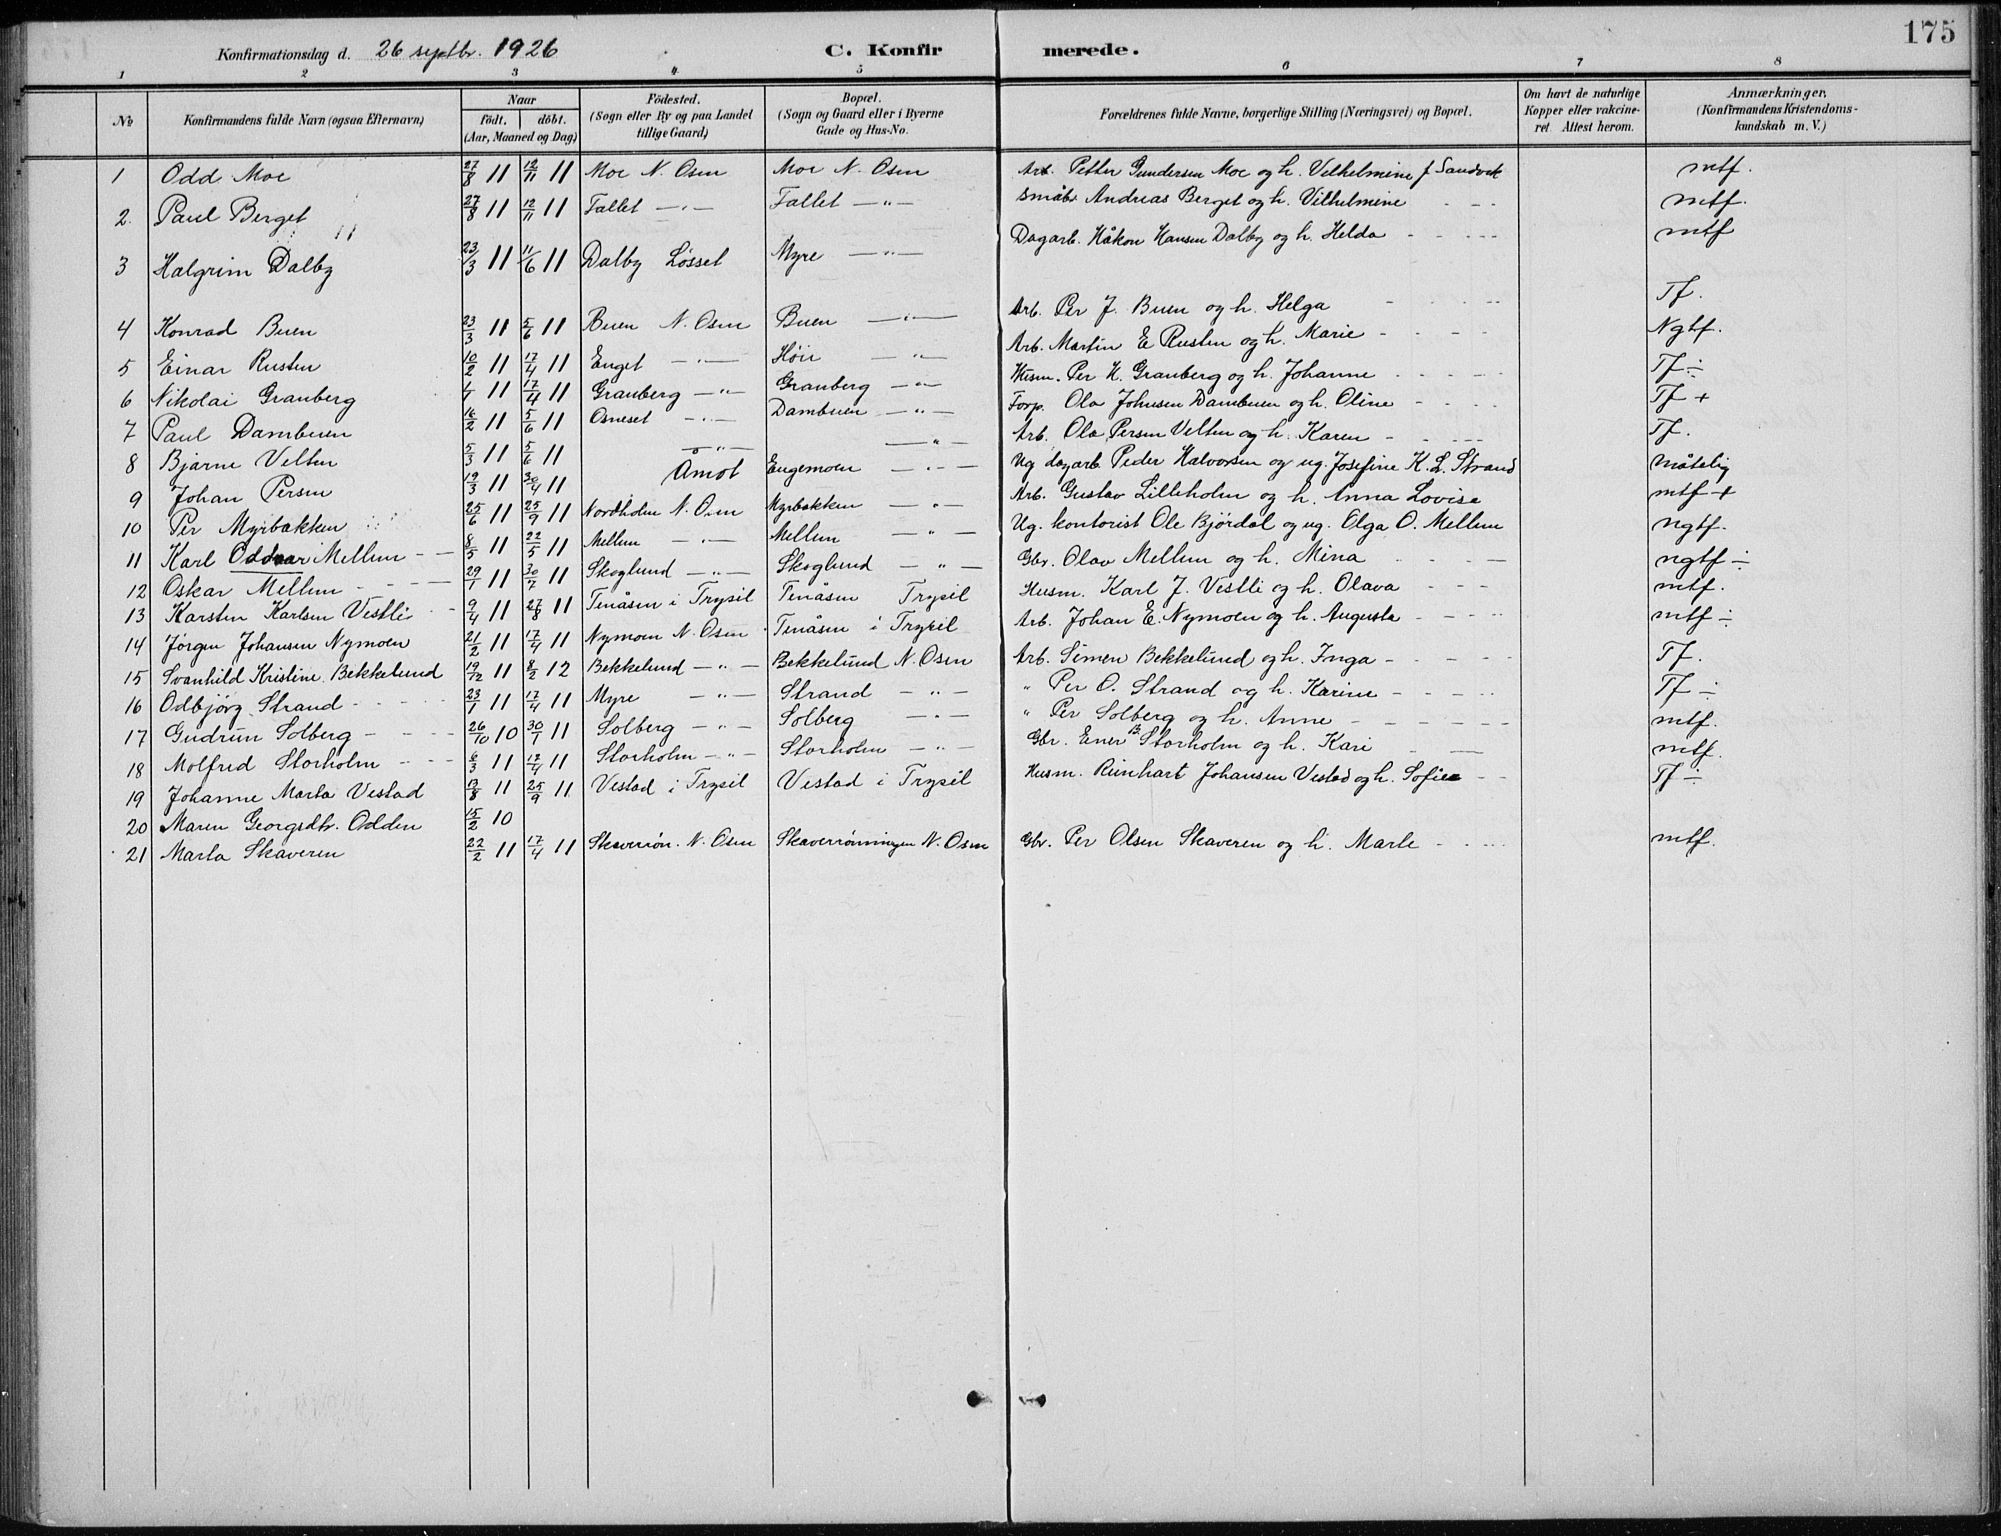 Konfirmationsdag d. 26 septbr. 1926 C. Konfirmerede. 175
1 2 3 4 5 6 7 8
№ Konfirmandens fulde Navn (ogsaa Efternavn) Naar Födt. döbt. (Aar, Maaned og Dag) Födested. (Sogn eller By og paa Landet tillige Gaard) Bopæl. (Sogn og Gaard eller i Byerne Gade og Hus-No. Forældrenes fulde Navne, borgerlige Stilling (Næringsvei) og Bopæl. Om havt de naturlige Kopper eller vakcineret. Attest herom. Anmærkninger. (Konfirmandens Kristendomskundskab m. V.)
1 Odd Moe 27/8 11 12/11 11 Moe N. Osen Moe N. Osen Arb. Petter Gundersen Moe og h. Vilhelmine f Sandvik mtf.
2. Paul Berget 27/8 11 12/11 11 Fallet —"— Fallet —"— Småbr. Andreas Berget og h. Vilhelmine - - - mtf.
3 Halgrim Dalby 23/3 11 11/6 11 Dalby Løsset Myre —"— Dagarb. Håkon Hansen Dalby og h. Helda - - - - mtf
4 Konrad Buen 23/3 11 5/6 11 Buen N. Osen Buen —"— Arb. Per J. Buen og h. Helga - - - Tf.
5 Einar Rusten 10/2 11 17/4 11 Enget —"— Höie —"— Arb. Martin E Rusten og h. Marie - - - - Ngtf.
6 Nikolai Granberg 11 17/4 11 Granberg —"— Granberg —"— Husm. Per K. Granberg og h. Johanne - - - - Tf ÷
7 Paul Dambuen 16/2 11 5/6 11 Osneset —"— Dambuen —"— Forp. Ola Johnsen Dambuen og h. Oline - - - - Tf +
8 Bjarne Velten 5/3 11 5/6 11 —"— —"— Arb. Ola Persen Velten og h. Karen - - - - Tf.
9 Johan Persen 19/3 11 30/4 11 Åmot Engemoen —"— Ug dagarb. Peder Halvorsen og ug. Josefine K. L. Strand måtelig
10 Per Myrbakken 25/6 11 25/9 11 Nordholm N. Osen Myrbakken —"— Arb. Gustav Lilleholm og h. Anna Lovise mtf +
11 Karl Oddvar Mellem - - 8/5 11 22/5 11 Mellem —"— Mellem —"— Ug. kontorist Ole Björdal og ug. Olga O. Mellem ngtf.
12 Oskar Mellem - - - 29/1 11 30/7 11 Skoglund —"— Skoglund —"— Gbr. Olav Mellem og h. Mina - - - - ngtf ÷
13 Karsten Karlsen Vestli - 9/4 11 27/8 11 Tenåsen i Trysil Tenåsen Trysil Husm. Karl J. Vestli og h. Olava - - - mtf.
14 Jörgen Johansen Nymoen 21/2 11 17/4 11 Nymoen N. Osen Tenåsen i Trysil Arb. Johan E. Nymoen og h. Augusta - - - - mtf ÷
15 Svanhild Kristine Bekkelund 19/12 11 8/2 12 Bekkelund —"— Bekkelund N. Osen Arb. Simen Bekkelund og h. Inga - - - - Tf.
16 Odbjörg Strand - - - - 23/1 11 17/4 11 Myre —"— Strand —"— " Per O. Strand og h. Karine - - - - Tf ÷
17 Gudrun Solberg - - - - 26/10 10 30/1 11 Solberg —"— Solberg —"— " Per Solberg og h. Anne - - - - mtf.
18 Molfrid Storholm - - - 6/3 11 17/4 11 Storholm —"— Storholm —"— Gbr. Ener B. Storholm og h. Kari - — mtf.
19 Johanne Marta Vestad 13/8 11 25/9 11 Vestad i Trysil Vestad i Trysil Husm. Reinhart Johansen Vestad og h. Sofie - - Tf ÷
20 Maren Georgsdtr. Odden 15/2 10
21 Marta Skaveren 22/2 11 17/4 11 Skaverrön. N. Osen Skaverrönningen N. Osen Gbr. Per Olsen Skaveren og h. Marte - - - mtf.